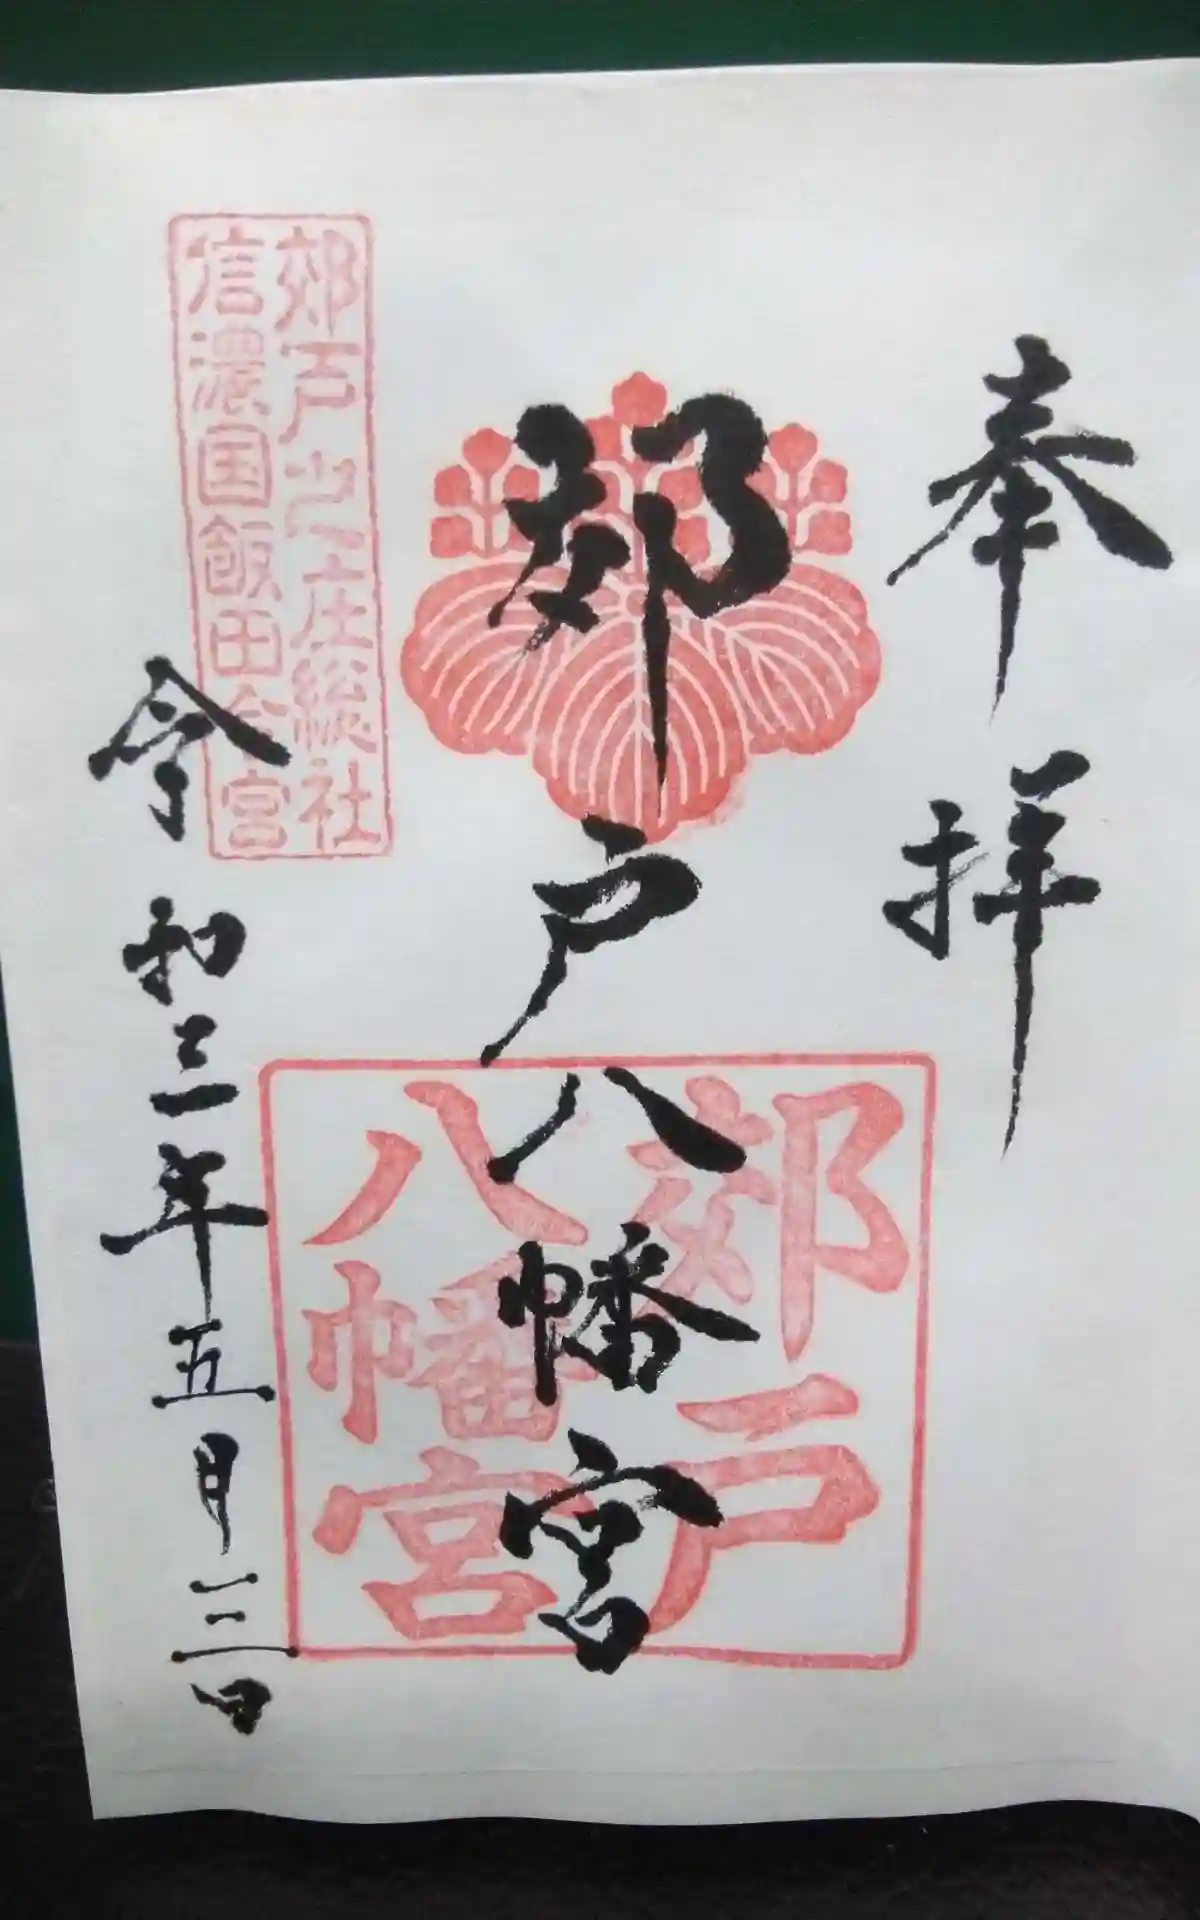 奉拝
郊戸八幡宮
郊戸
八幡宮
郊戸之庄総社
信濃国飯田今宮
令和三年五月三日